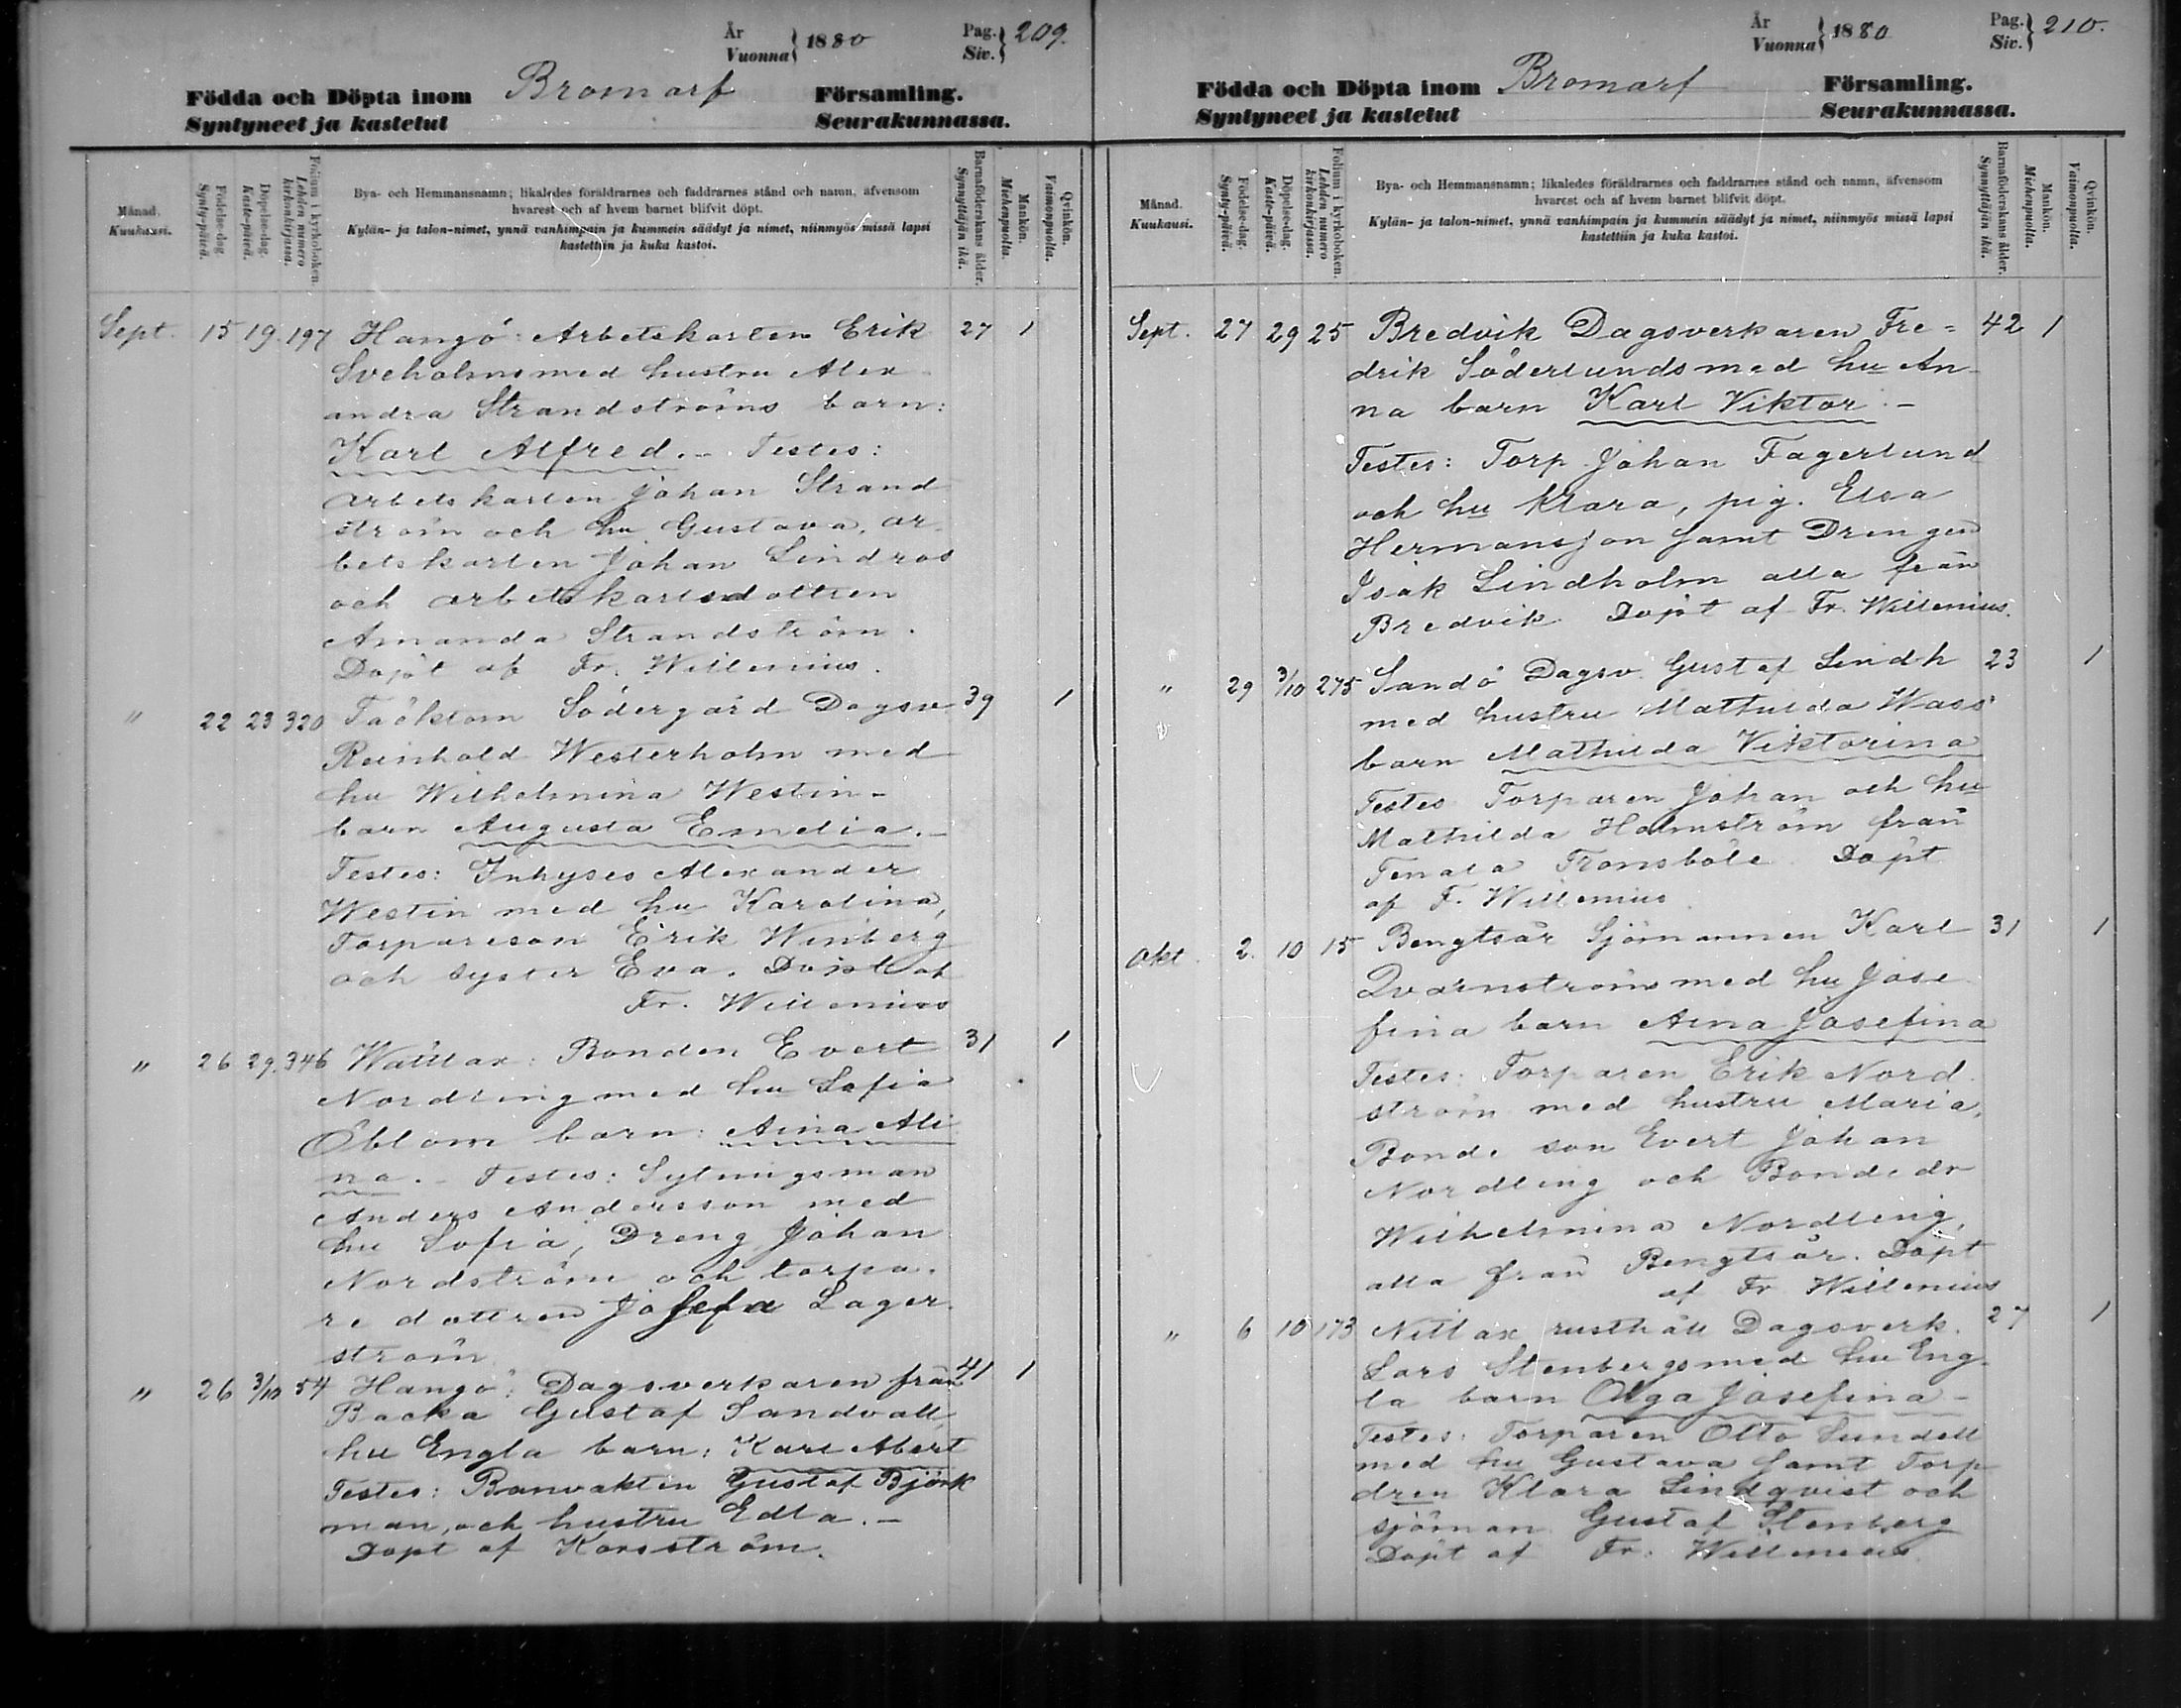 År
Vuonna } 1880
Pag.
Siv. } 209.
Födda och Döpta inom Bromarf Församling.
Syntyneet ja kastetut Seurakunnassa.
Månad.
Kuukausi.
Födelse-dag.
Synty-päivä.
Döpelse-dag.
Kaste-päivä.
Folium i kyrkoboken.
Lehden numero
kirkonkirjassa.
Bya- och Hemmansnamn; likaledes föräldrarnes och faddrarnes stånd och namn, äfvensom
hvarest och af hvem barnet blifvit döpt.
Kylän- ja talon-nimet, ynnä vanhimpain ja kummein säädyt ja nimet, niinmyös missä lapsi
kastettiin ja kuka kastoi.
Barnaföderskans ålder.
Synnyttäjän ikä.
Mankön.
Miehenpuolta.
Qvinkön.
Vaimonpuolta.
Sept. 15 19. 197 Hangö: Arbetskarlen Erik 27 1
Sveholms med hustru Alex
andra Strandströms barn:
Karl Alfred. - Testes:
arbetskarlen Johan Strand
ström och hu Gustava, ar-
betskarlen Johan Lindros
och arbetskarlsdottren
Amanda Strandström.
Döpt af Fr. Willenius.
" 22 23 320 Täcktom Södergård Dagsv. 39 1
Reinhold Westerholm med
hu Wilhelmina Westin -
barn Augusta Emelia. -
Testes: Inhyses Alexander
Westin med hu Karolina,
Torpareson Erik Winberg
och syster Eva. Döpt af
Fr. Willenius
" 26 29. 346 Wättlax: Bonden Evert 31 1
Nordling med hu Sofia
Öblom barn: Aina Ali
na. - Testes: Sytningsman
Anders Andersson med
hu Sofia, Dreng Johan
Nordström och torpa-
re dottren Josefa Lager-
ström
" 26 3/10 54 Hangö: Dagsverkaren från 41 1
Backa Gustaf Sandvall,
hu Engla barn: Karl Abert
Testes: Banvakten Gustaf Björk
man, och hustru Edla. -
Döpt af Korsström.
År
Vuonna } 1880
Pag.
Siv. } 210.
Födda och Döpta inom Bromarf Församling.
Syntyneet ja kastetut Seurakunnassa.
Månad.
Kuukausi.
Födelse-dag.
Synty-päivä.
Döpelse-dag.
Kaste-päivä.
Folium i kyrkoboken.
Lehden numero
kirkonkirjassa.
Bya- och Hemmansnamn; likaledes föräldrarnes och faddrarnes stånd och namn, äfvensom
hvarest och af hvem barnet blifvit döpt.
Kylän- ja talon-nimet, ynnä vanhimpain ja kummein säädyt ja nimet, niinmyös missä lapsi
kastettiin ja kuka kastoi.
Barnaföderskans ålder.
Synnyttäjän ikä.
Mankön.
Miehenpuolta.
Qvinkön.
Vaimonpuolta.
Sept. 27 29 25 Bredvik Dagsverkaren Fre= 42 1
drik Söderlunds med hu An
na barn Karl Viktor. -
Testes: Torp. Johan Fagerlund
och hu Klara, pig. Elsa
Hermansson samt Drengen
Isak Lindholm alla från
Bredvik Döpt af Fr. Willenius.
" 29 3/10 275 Sandö Dagsv. Gustaf Lindh 23 1
med hustru Mathilda Wass
barn Mathilda Viktorina
Testes Torparen Johan och hu
Mathilda Holmström från
Tenala Fronsböle. Döpt
af F. Willenius.
Okt. 2. 10 15 Bengtsår Sjömannen Karl 31 1
Qvarnströms med hu Jose
fina barn Aina Josefina
Testes: Torparen Erik Nord
ström med hustru Maria,
Bonde son Evert Johan
Nordling och Bonde dr
Wilhelmina Nordling,
alla från Bengtsår. Döpt
af Fr Willenius
" 6 10 173 Nitlax rusthåll Dagsverk. 27 1
Lars Stenbergs med hu Eng-
la barn Olga Josefina -
Testes: Torparen Otto Sundell
med hu Gustava samt Torp
dren Klara Lindqvist och
sjöman Gustaf Stenberg
Döpt af Fr. Willenius